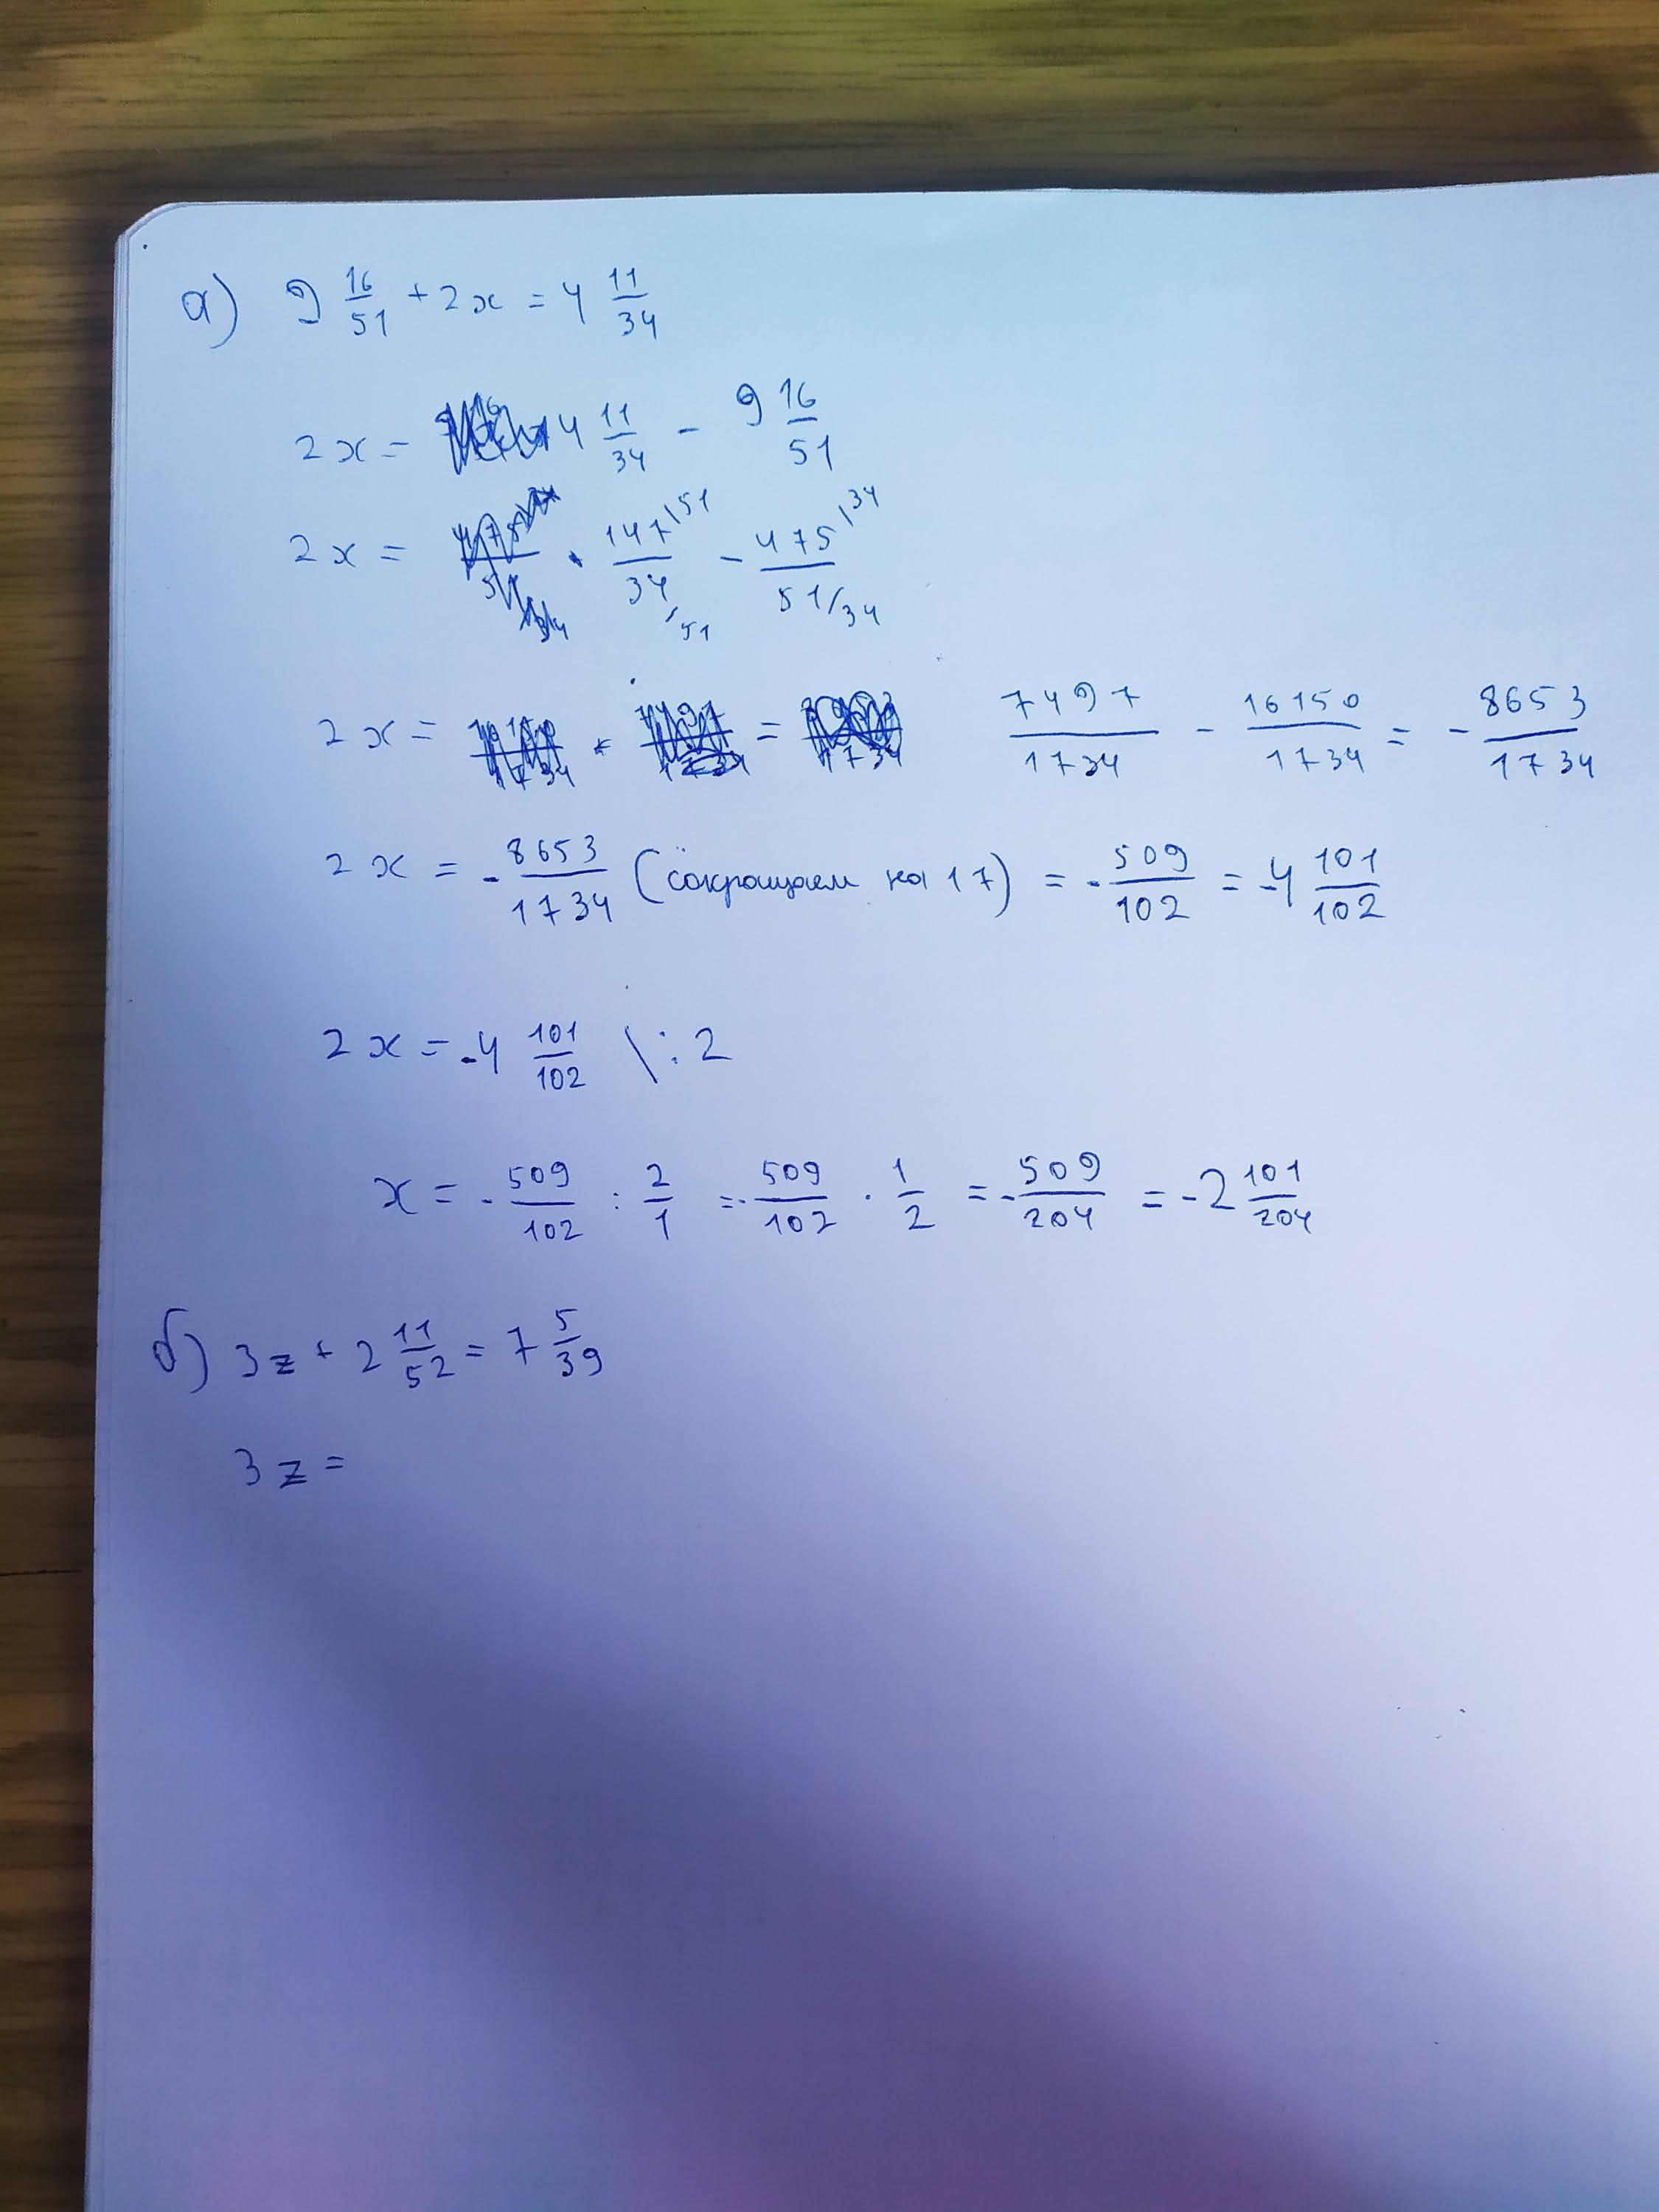 а) 9 16/51 + 2x = 4 11/34
2x = 4 11/34 - 9 16/51
2x = 147\51/34/51 - 475\34/51/34
2x = 7497/1734 - 16150/1734 = - 8653/1734
2x = - 8653/1734 (сокращаем на 17) = - 509/102 = -4 101/102
2x = -4 101/102 \ : 2
x = - 509/102 : 2/1 = - 509/102 · 1/2 = - 509/204 = -2 101/204
б) 3z + 2 11/52 = 7 5/39
3z =